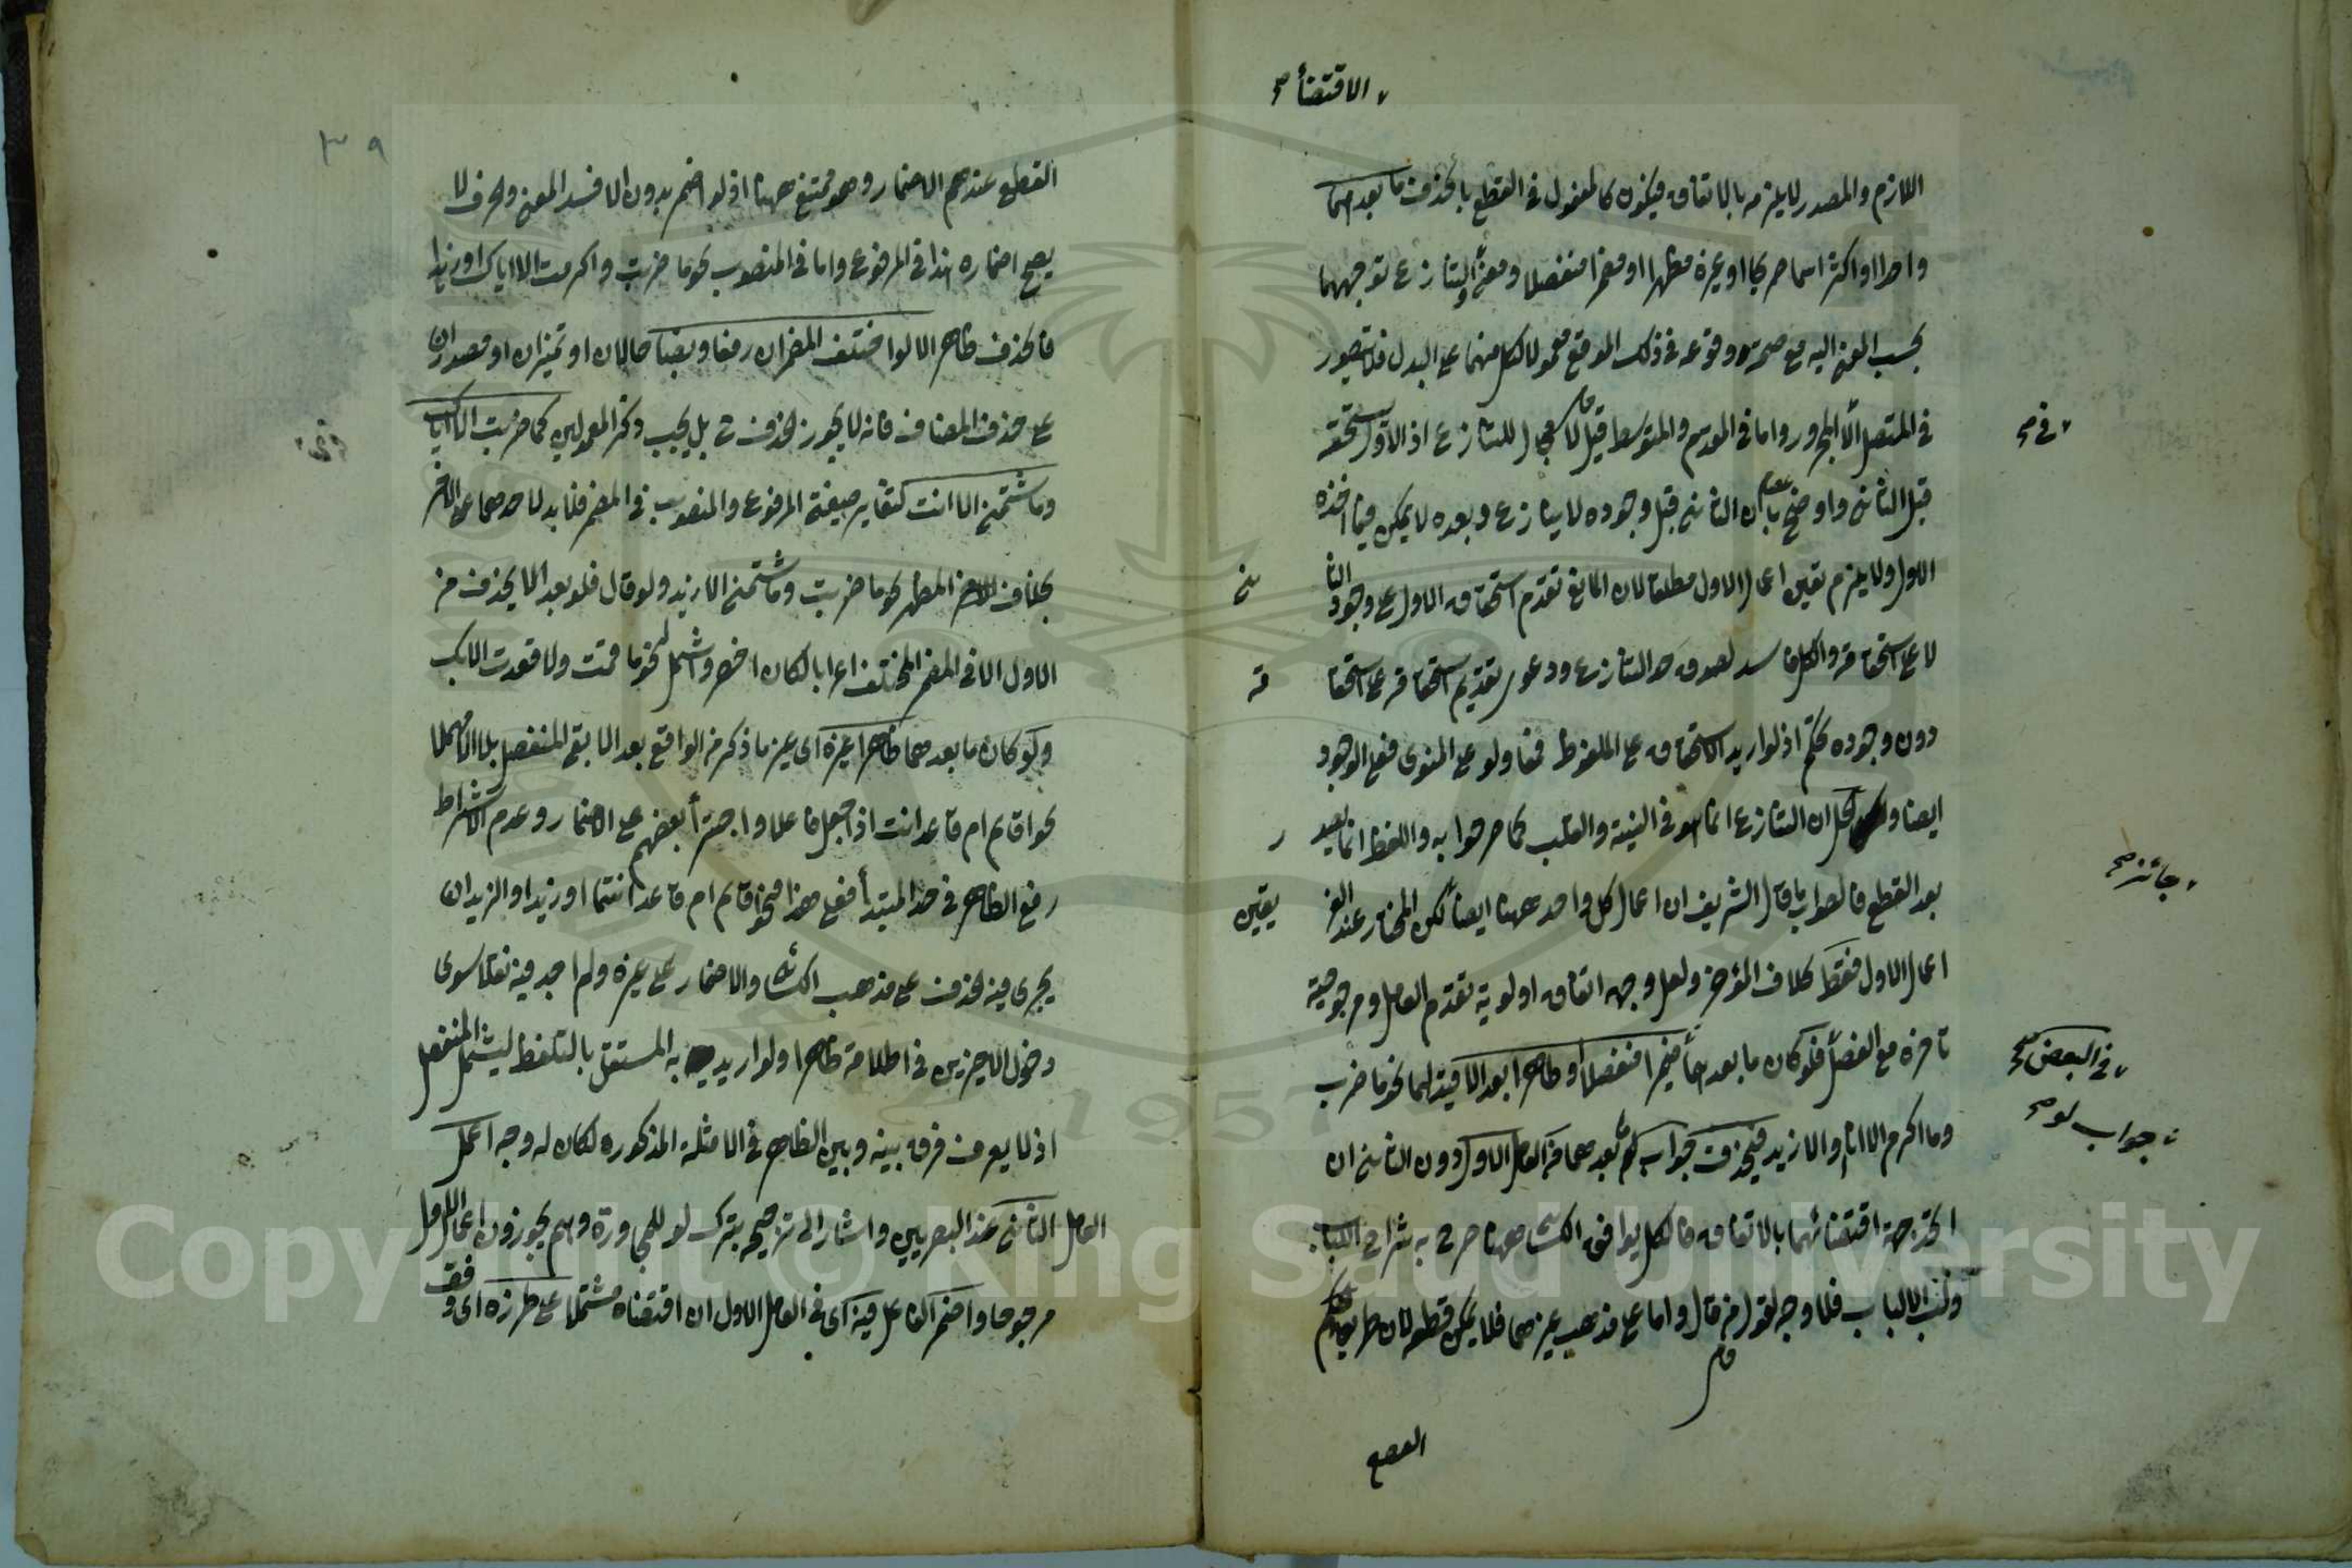 الاقتضاء صح
اللازم والمصدر لا يلزمه بالاتفاق فيكون كالمفعول في القطع بالحذف ما بعدهما
واحدا او اكثر اسما صريحا او غيره مظهرا او مضمرا منفصلا ومعنى التنازع توجههما
بحسب المعنى اليه مع صحة وقوعه في ذلك الموقع معمولا لكل منهما على البدل فلا يتصور
في المتصل الا المجرور واما في المقدم والمتوسط قيل لا مجال للتنازع اذ الاول يستحقه
في صح
قبل الثاني واوضح بان الثاني قبل وجوده لا ينازع وبعده لا يمكن فيما اخذه
الاول ولا يلزم تعين اعمال الاول مطلقا لان المانع تقدم استحقاق الاول على وجود الثاني
لا على استحقاقه والكل فاسد لصدق حد التنازع ودعوى تقديم استحقاقه على استحقاقه
دون وجوده تحكم اذ لو اريد الاستحقاق على الملفوظ فمعا ولو على المنوى فمع الوجود
ايضا ولعل ان التنازع انما هو في النية والقلب كما صرحوا به واللفظ انما يعد
بعد القطع فالصواب ما قال الشريف ان اعمال كل واحد ههنا ايضا لكن المختار عند الفريقين
جائز صح
اعمال الاول فقط بخلاف المؤخر ولعل وجهه اتفاق اولوية تقدم العامل ومرجوحية
تأخره مع الفصل فلو كان ما بعدهما ضميرا منفصلا او ظاهرا بعد الا فيه لهما نحو ما ضرب
في البعض صح
وما اكرم الا انا والا زيد فيحذف جواب لو بعدهما من العامل الاول دون الثاني ان
جواب لو صح
اقتضائهما بالاتفاق فالكل يوافق الكسائي ههنا صرح به شراح اللباب
ولب الالباب فلا وجه لقول من قال واما على مذهب غيرهما فلا يمكن قطعه لان طريق
القطع
٣٩
القطع عندهم الاضمار وهو ممتنع ههنا اذ لو اضمر بدون الا فسد المعنى وحرف لا
يصح اضماره هذا في المرفوع واما في المنصوب نحو ما ضربت واكرمت الا اياك او زيدا
فالحذف ظاهر الا لو اختلف المضمران رفعا ونصبا حالان او تميزان او مصدران
على حذف المضاف فانه لا يجوز الحذف ح بل يجب ذكر المعمولين كما ضربت الا اياك
وما شتمني الا انت لتغاير صيغة المرفوع والمنصوب في المضمر فلا يدل احدهما على الاخر
بخلاف المظهر نحو ما ضربت وما شتمني الا زيد ولو قال فلو بعد الا يحذف من
الاول الا في المضمر المختلف اعرابا لكان اخصر واشمل لنحو ما قمت ولا قعدت الا بك
ولو كان ما بعدهما ظاهرا غيره اى غير ما ذكر من الواقع بعد الا بقى المنفصل بلا الا مهملا
نحو اقائم ام قاعد انت اذا جعل فاعلا واجترأ بعضهم على الاضمار وعدم اشتراط
رفع الظاهر في حد المبتدأ فعلى هذا نحو اقائم ام قاعد انتما او زيد او الزيدان
يجري فيه الحذف على مذهب الكسائي والاضمار على غيره ولم اجد فيه نقلا سوى
دخول الاخيرين في اطلاقه ظاهرا ولو اريد به المستقل بالتلفظ ليشمل المنفصل
اذ لا يعرف فرق بينه وبين الظاهر في الامثلة المذكورة لكان له وجه اعمل
العامل الثاني عند البصريين واشار الى ترجيحه بترك لو للمجاورة وهم يجوزون اعمال الاول
مرجوحا واضمر الفاعل فيه اى في العامل الاول ان اقتضاه مشتملا على طرزه اى وفق
Copyright © King Saud University
1957